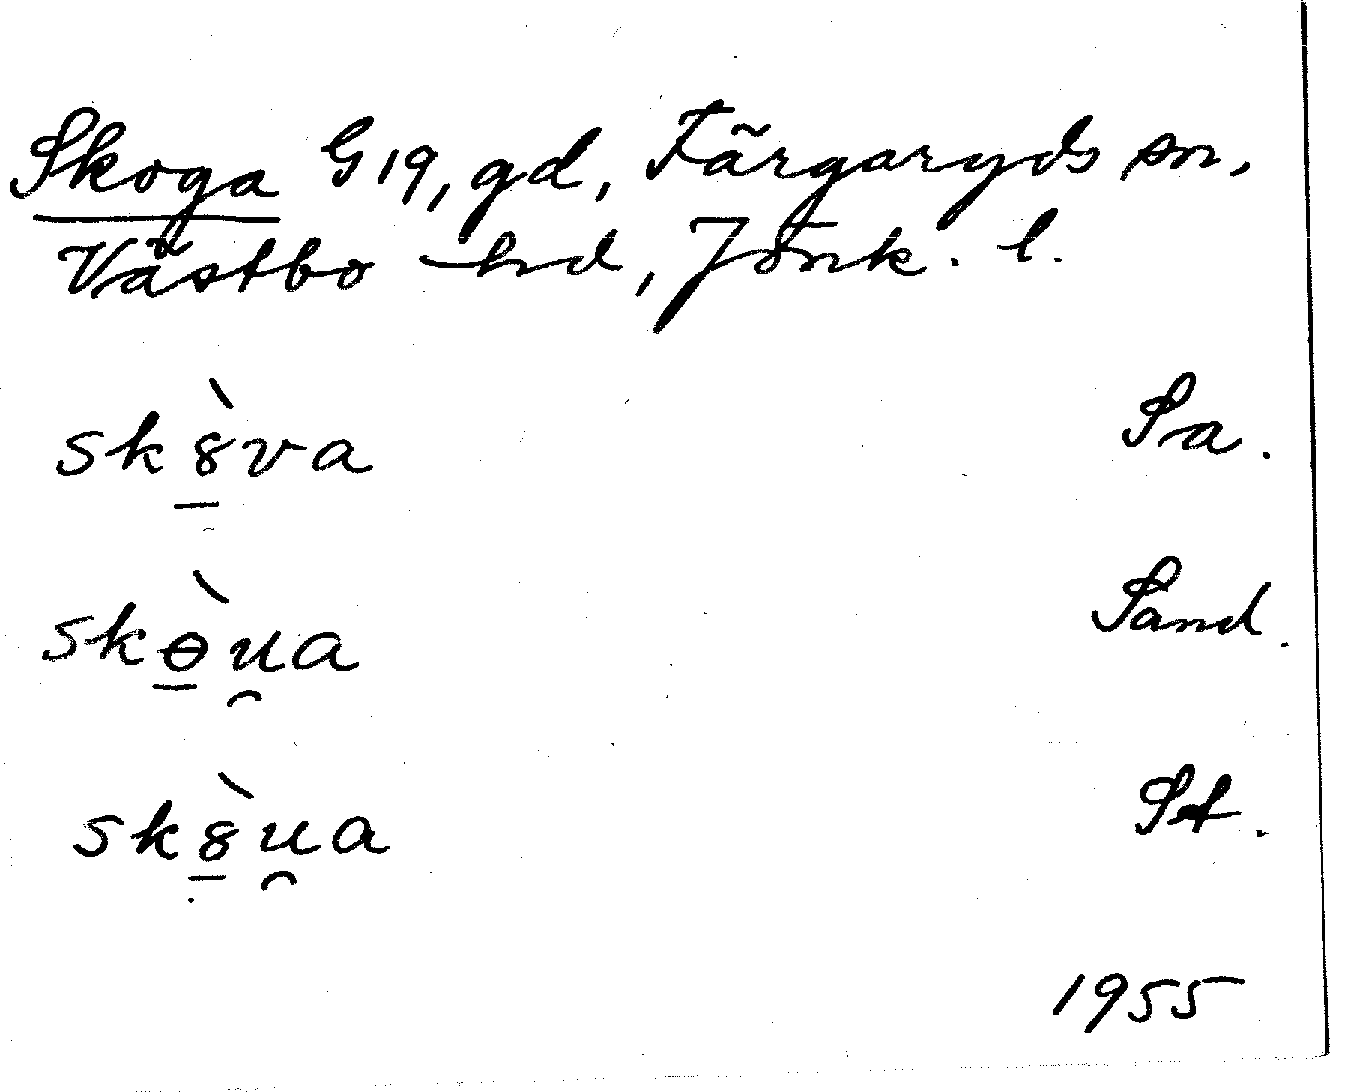 Skoga G19, gd, Färgaryds sn,
Västbo hd, Jönk. l.
sk8̱̀va Sa.
skɵ̱̀u̯a Sand.
sk8̱̀u̯a St.
1955